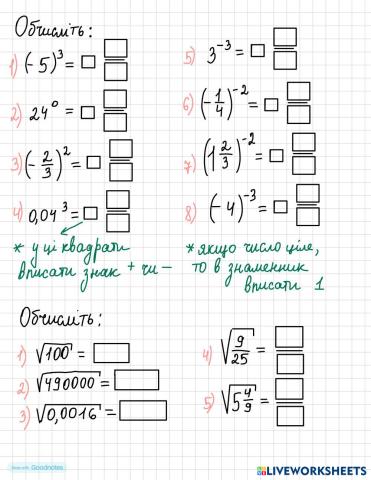 Обчисліть:
1) (-5)³ = □ □/□
2) 24⁰ = □ □/□
3) (-2/3)² = □ □/□
4) 0,04³ = □ □/□
* у ці квадрати
вписати знак + чи -
5) 3⁻³ = □ □/□
6) (-1/4)⁻² = □ □/□
7) (1 2/3)⁻² = □ □/□
8) (-4)⁻³ = □ □/□
* якщо число ціле,
то в знаменник
вписати 1
Обчисліть:
1) √100 = □
2) √490000 = □
3) √0,0016 = □
4) √9/25 = □/□
5) √5 4/9 = □/□
Made with Goodnotes
LIVEWORKSHEETS